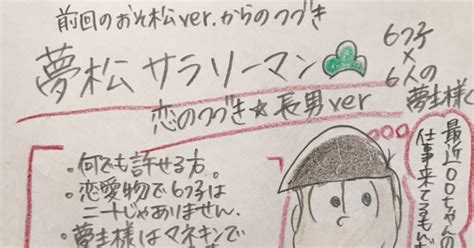 前回のおそ松ver.からのつづき
夢松 サラリーマン
恋のつづき☆長男ver
6つ子
×
6人の
夢主様
・何でも許せる方。
・恋愛物で6つ子は
ニートじゃありません。
・夢主様はマネキンで
最近〇〇ちゃんの
仕事来てるもんね